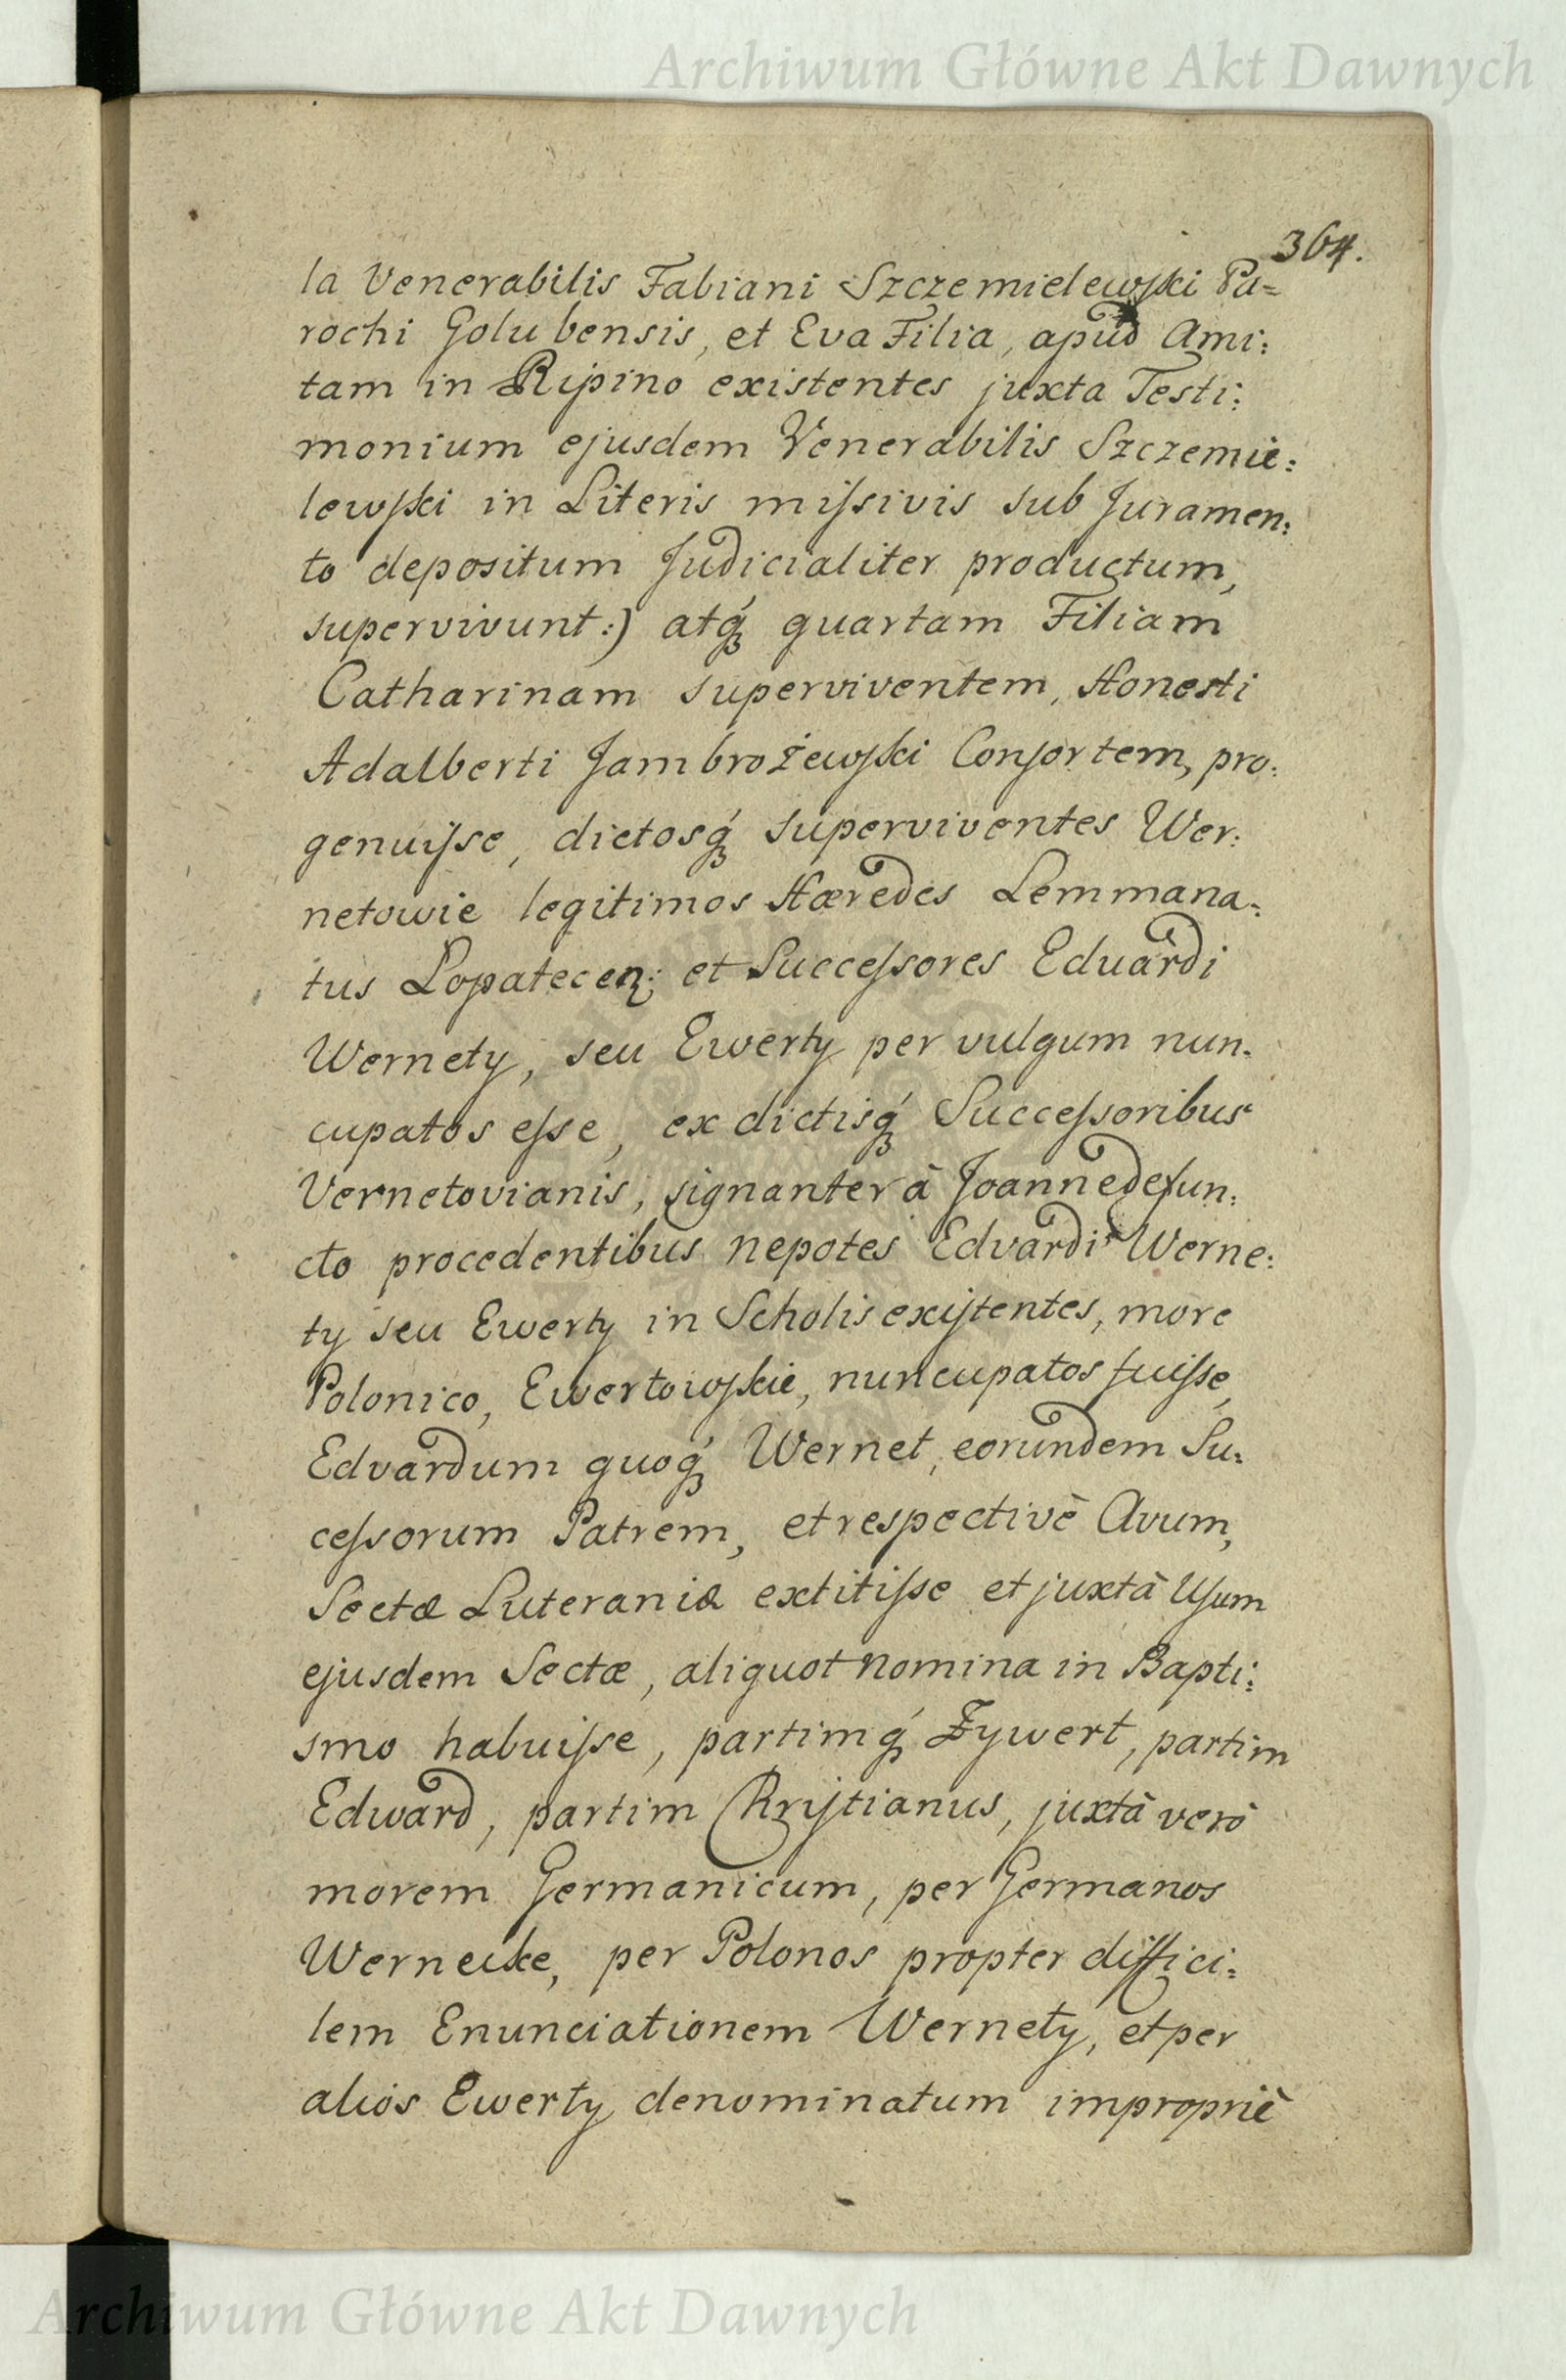 Archiwum Główne Akt Dawnych
364.
la Venerabilis Fabiani Szczemielewski Pa=
rochi Golubensis, et Eva Filia, apud Ami:
tam in Ripino existentes juxta Testi:
monium ejusdem Venerabilis Szczemie:
lewski in Literis missivis sub Juramen:
to depositum Judicialiter productum,
supervivunt:) atq́ quartam Filiam
Catharinam superviventem, Honesti
Adalberti Jambrożewski Consortem, pro:
genuisse, dictosq́ superviventes Wer:
netowie legitimos Hæredes Lemmana:
tus Lopatecen: et Successores Eduardi
Wernety, seu Ewerty per vulgum nun:
cupatos esse, ex dictisq́ Successoribus
Vernetovianis, signanter à Joanne defun:
cto procedentibus nepotes Edvardi Werne:
ty seu Ewerty in Scholis existentes, more
Polonico, Ewertowskie, nuncupatos fuisse,
Edvardum quoq́ Wernet, eorundem Su:
cessorum Patrem, et respectivè Avum,
Sectæ Luteraniæ extitisse et juxtà Usum
ejusdem Sectæ, aliquot nomina in Bapti:
smo habuisse, partimq́ Zywert, partim
Edward, partim Krystianus, juxtà verò
morem Germanicum, per Germanos
Wernecke, per Polonos propter diffici:
lem Enunciationem Wernety, et per
alios Ewerty denominatum impropriè
Archiwum Główne Akt Dawnych